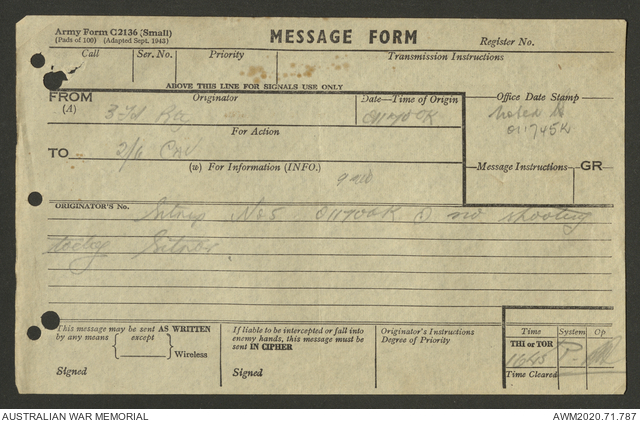 Army Form C2136 (Small)
(Pads of 100) (Adapted Sept. 1943)
MESSAGE FORM
Register No.
Call Ser. No. Priority Transmission Instructions
ABOVE THIS LINE FOR SIGNALS USE ONLY
FROM Originator Date—Time of Origin Office Date Stamp
(A) 3 Fd 011700K
For Action 011745K
TO 2/6 Cav
(w) For Information (INFO.) Message Instructions GR
ORIGINATOR'S No. Sitrep No 5 011700K no shooting
today
This message may be sent AS WRITTEN
by any means except
Wireless
Signed
If liable to be intercepted or fall into
enemy hands, this message must be
sent IN CIPHER
Signed
Originator's Instructions
Degree of Priority
Time System Op
THI or TOR
1645
Time Cleared
AUSTRALIAN WAR MEMORIAL AWM2020.71.787